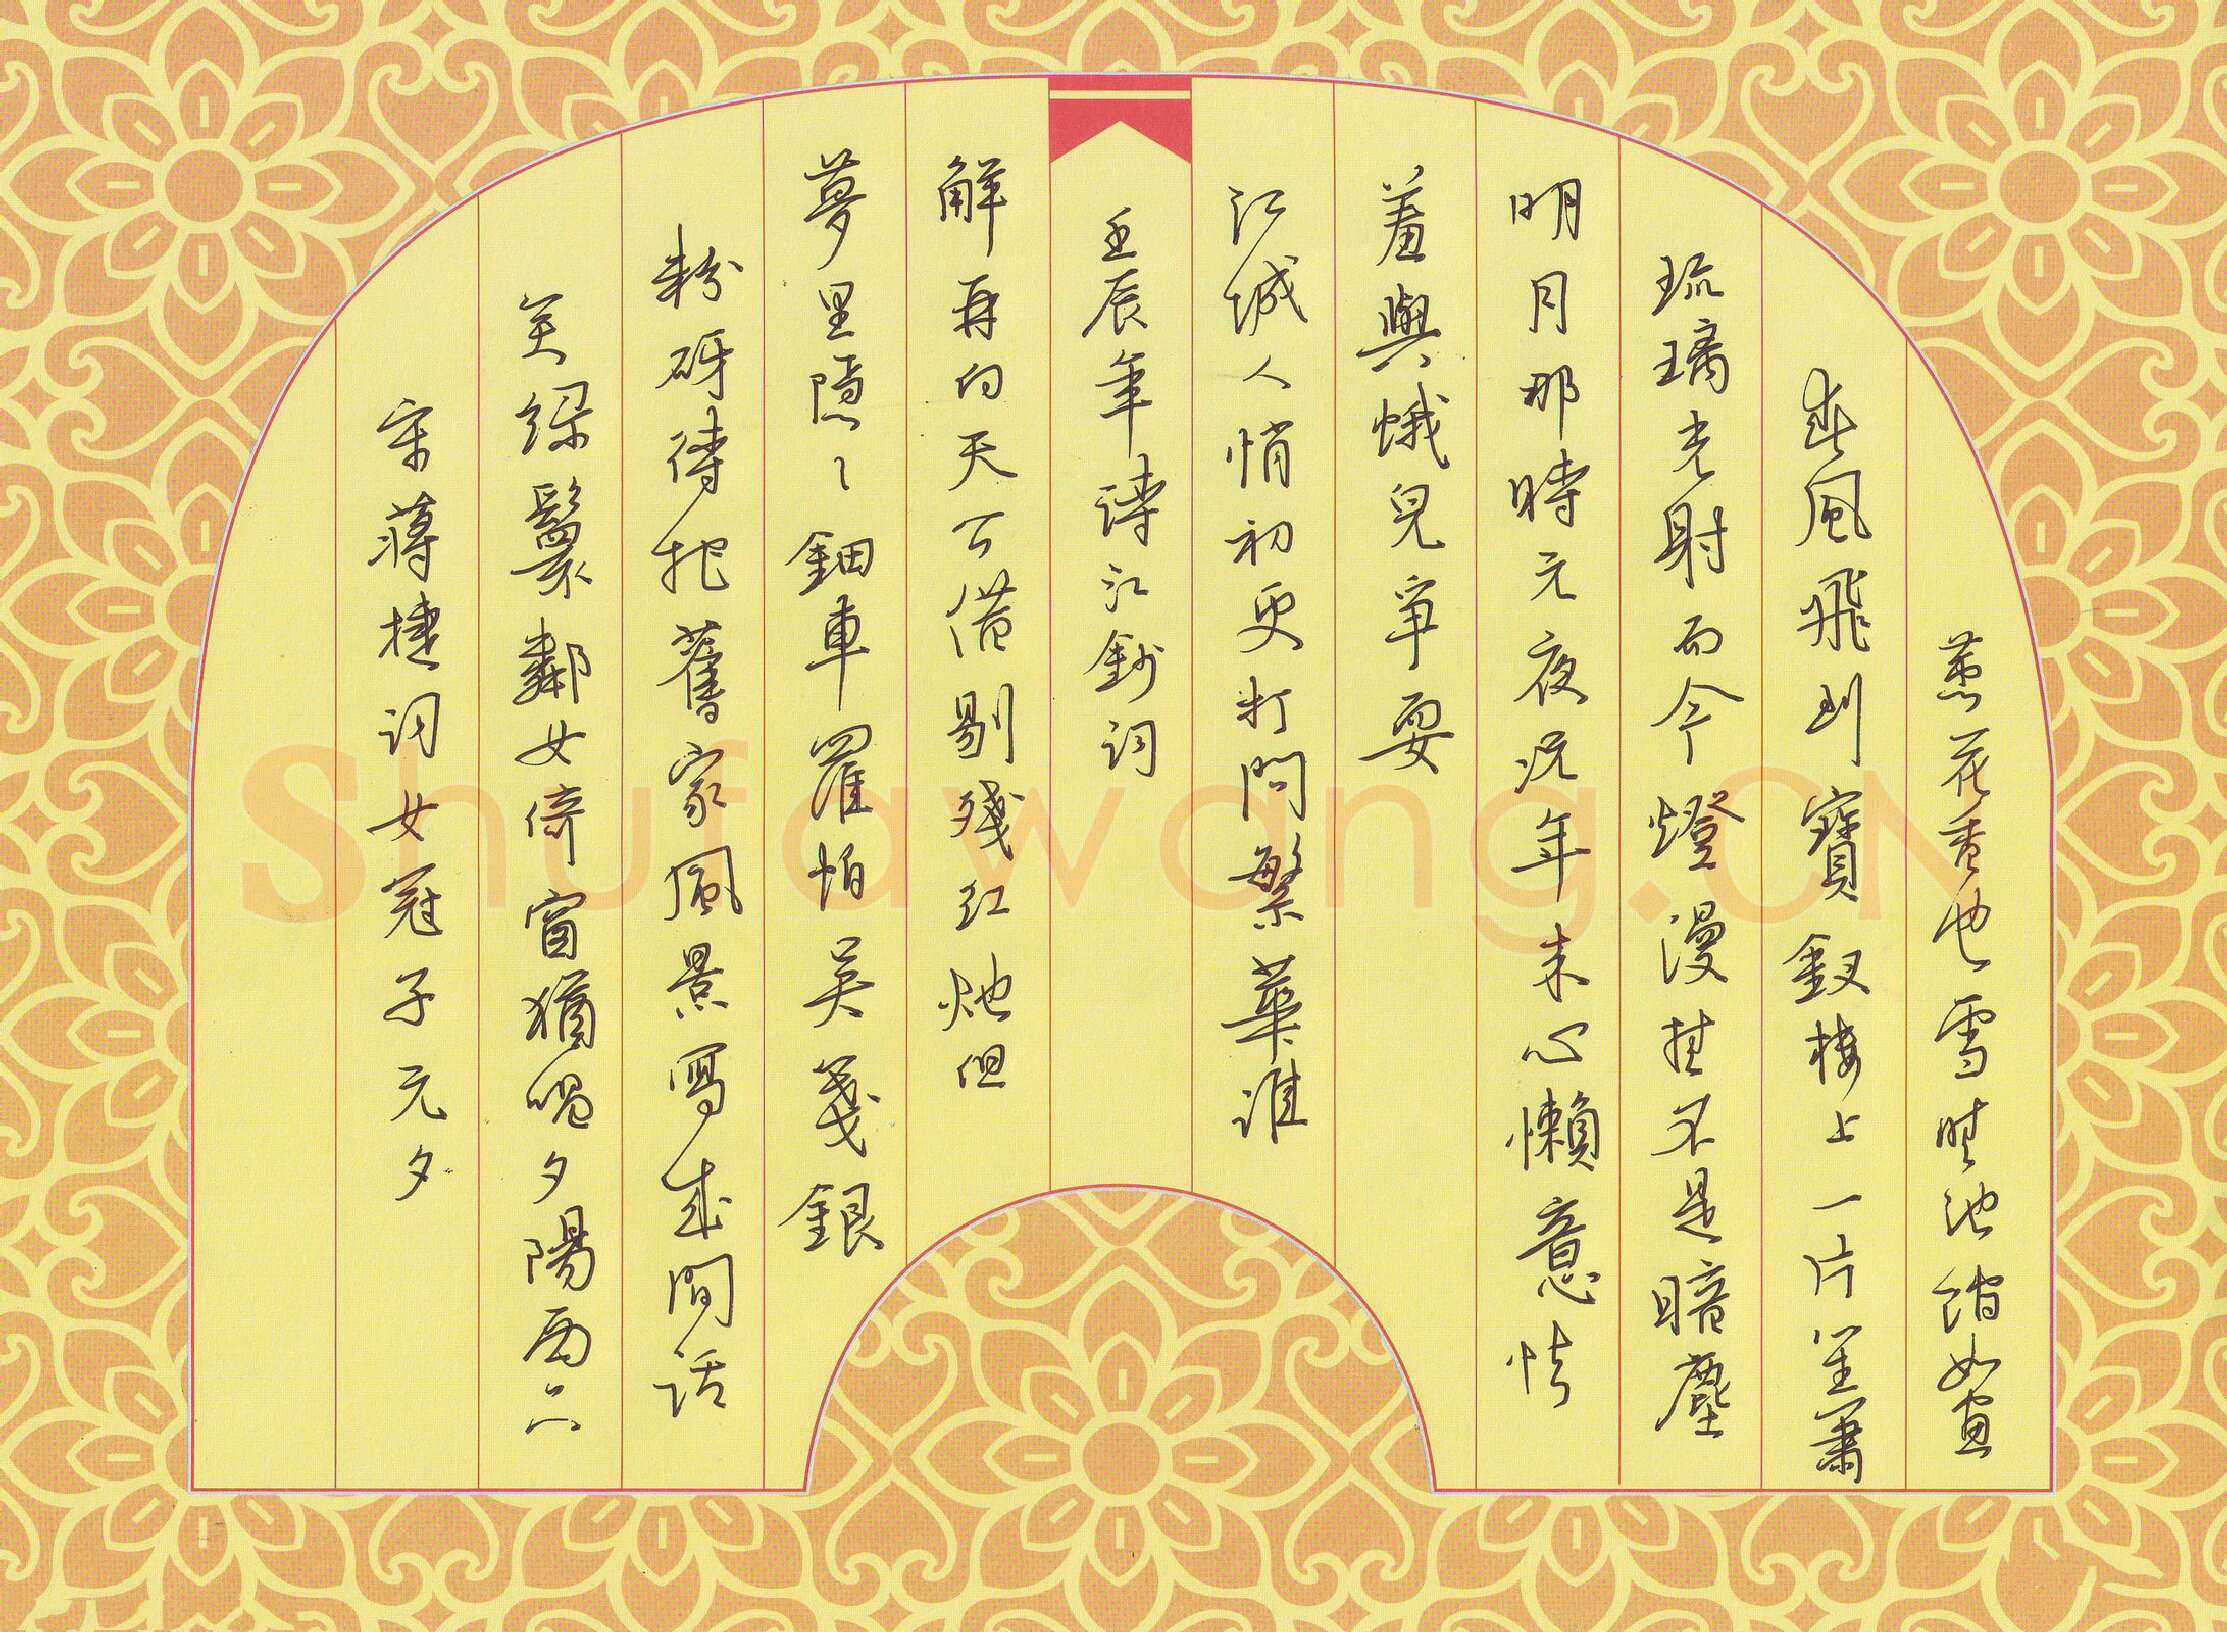 蕙花香也雪晴池館如畫
春風飛到寶釵樓上一片笙簫
琉璃光射而今燈漫挂不是暗塵
明月那時元夜況年來心懶意怯
羞與蛾兒爭耍
江城人悄初更打問繁華誰
壬辰年詩江鈔詞
解再向天公借剔殘紅灺但
夢里隱〻鈿車羅帕吳箋銀
粉砑待把舊家風景寫成閒話
笑綠鬟鄰女倚窗猶唱夕陽西下
宋蔣捷詞女冠子元夕
Shufawang.CN